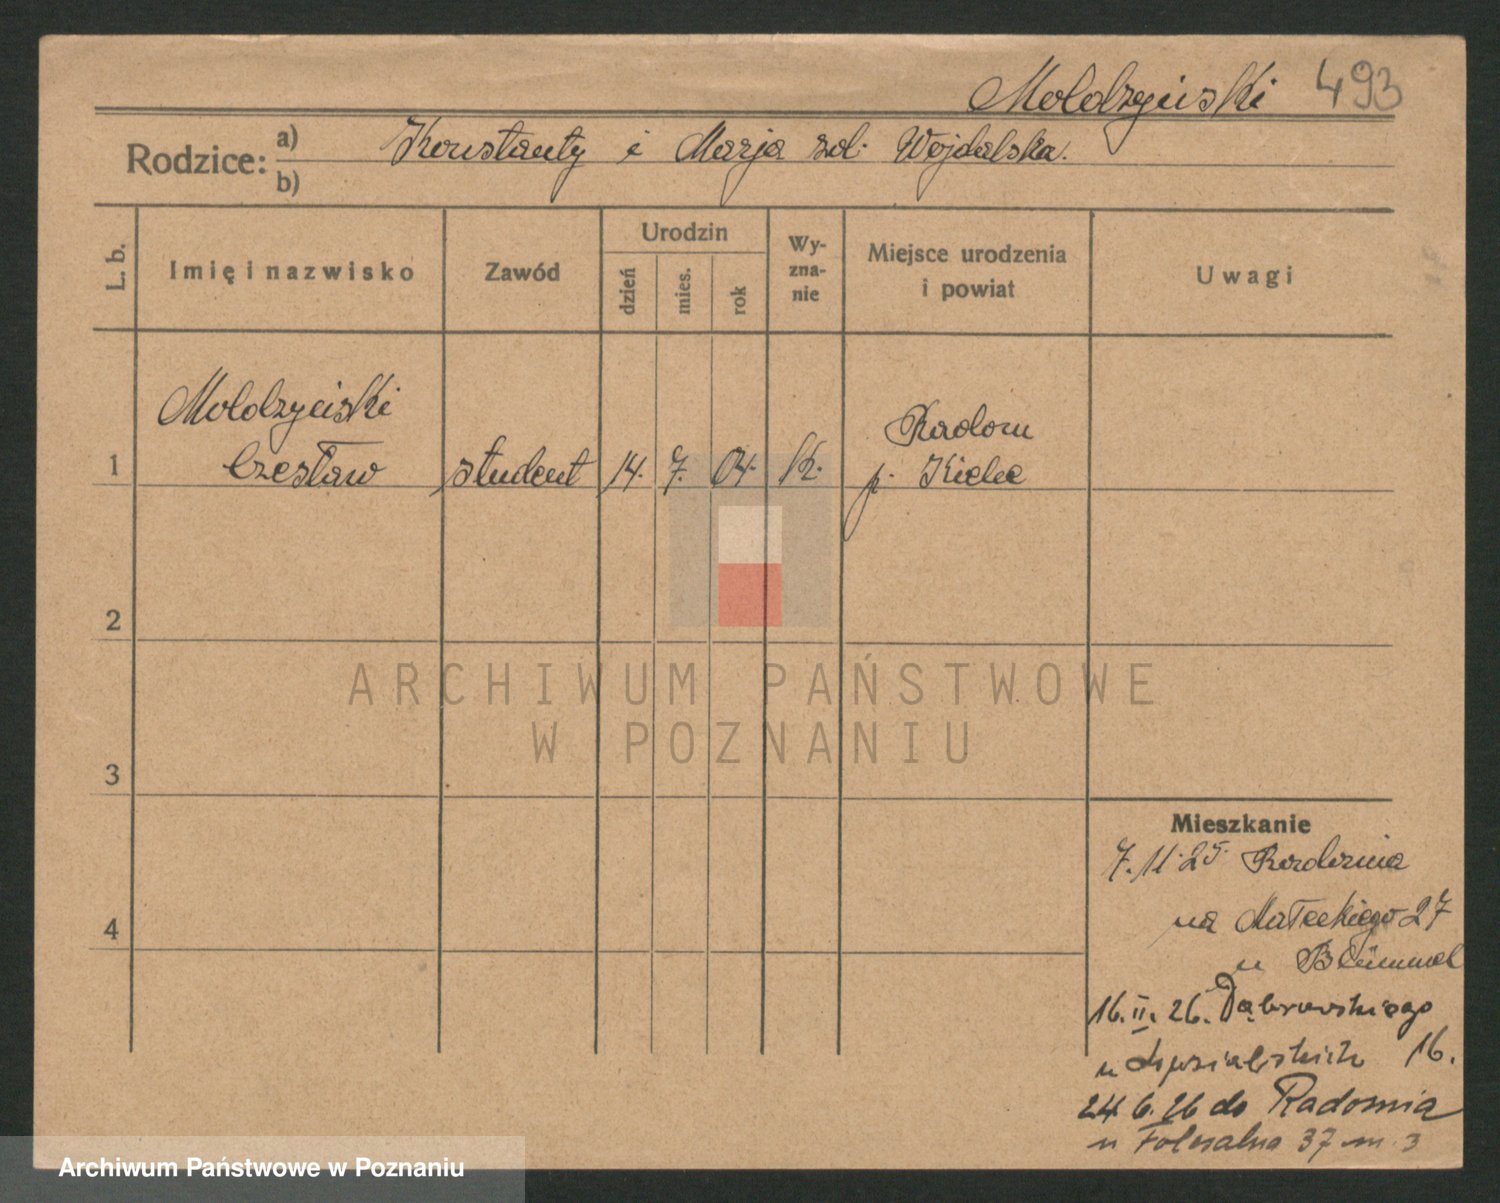 Mołdrzyński 493
Rodzice: a) Konstanty i Marja zd. Wojdalska.
b)
L. b.
Imię i nazwisko
Zawód
Urodzin
dzień
mies.
rok
Wy-
zna-
nie
Miejsce urodzenia
i powiat
Uwagi
Czesław
1
student 14. 7. 04. K.
Radom
p. Kielce
2
3
4
ARCHIWUM PAŃSTWOWE
W POZNANIU
Mieszkanie
7.11.25 Radomia
na Małeckiego 27
u Blümmel
16.II.26. Dąbrowskiego
u 16.
24 6.26 do Radomia
37 m. 3
Archiwum Państwowe w Poznaniu